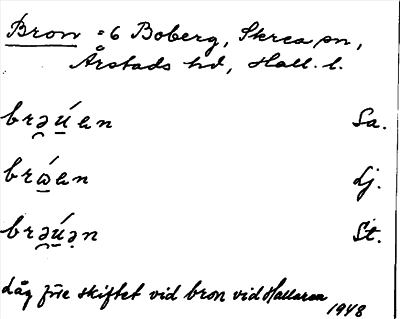 Bron = 6 Boberg, Skrea sn,
Årstads hd, Hall. l.
brə̯ú̲en Sa.
brώ̲en Lj.
brə̯ú̲ə̣n St.
Låg före skiftet vid bron vid Hallarea
1948